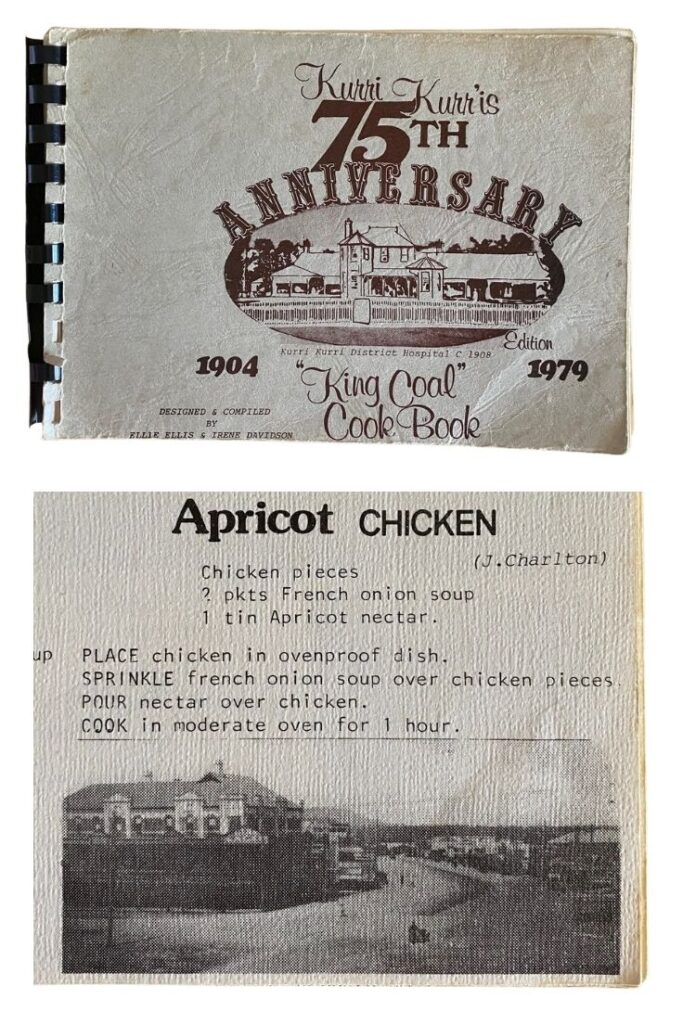 Kurri Kurr'is
75TH
ANNIVERSARY
Edition
Kurri Kurri District Hospital C 1908
1904
1979
"King Coal"
Cook Book
DESIGNED & COMPILED
BY
ELLIE ELLIS & IRENE DAVIDSON
Apricot CHICKEN
(J.Charlton)
Chicken pieces
? pkts French onion soup
1 tin Apricot nectar.
up
PLACE chicken in ovenproof dish.
SPRINKLE french onion soup over chicken pieces.
POUR nectar over chicken.
COOK in moderate oven for 1 hour.